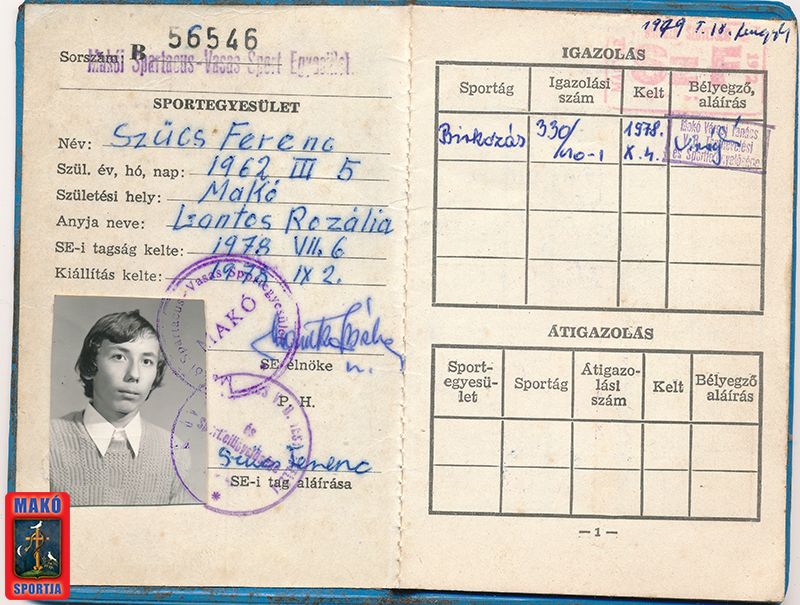 Sorszám: B 56546
Makói Spartacus-Vasas Sport Egyesület.
SPORTEGYESÜLET
Név: Szűcs Ferenc
Szül. év, hó, nap: 1962 III 5
Születési hely: Makó
Anyja neve: Lantos Rozália
SE-i tagság kelte: 1978 VII. 6
Kiállítás kelte: 1978 IX 2.
Spartacus-Vasas Sportegyesület
MAKÓ
SE elnöke
P. H.
és
Szűcs Ferenc
SE-i tag aláírása
MAKÓ
SPORTJA
1979 I. 18.
IGAZOLÁS
Sportág
Igazolási szám
Kelt
Bélyegző, aláírás
Birkozás
330/
1978. X. 4.
Makó Városi Tanács
V.B. Testnevelési
és Sportfelügyelősége
ÁTIGAZOLÁS
Sport-
egyesü-
let
Sportág
Átigazo-
lási
szám
Kelt
Bélyegző
aláírás
— 1 —